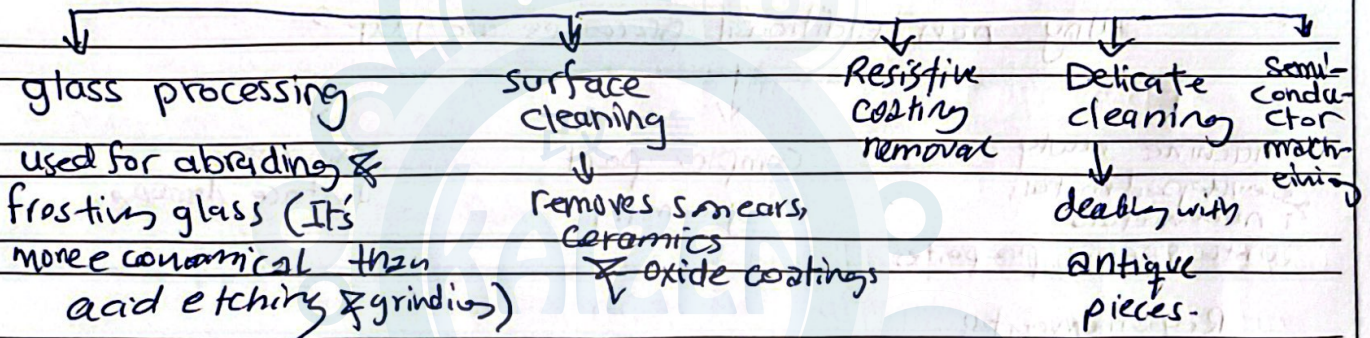 glass processing
used for abrading &
frosting glass (It's
more economical than
acid etching & grinding)
surface
cleaning
removes smears,
ceramics
& oxide coatings
Resistive
coating
removal
Delicate
cleaning
dealing with
antique
pieces.
Semi-
condu-
ctor
mach-
eining
KAIZEN